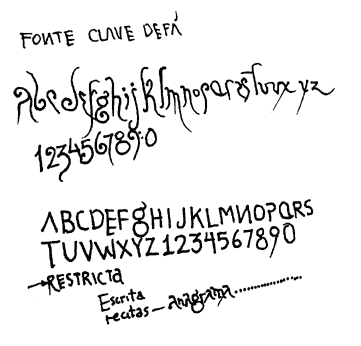 FONTE CLAVE DEFÁ
Abcdefghijklmnopqrstuvxyz
1234567890
ABCDEFGHIJKLMNOPQRS
TUVWXYZ1234567890
RESTRICTA
Escrita
recitas — anagrama..............